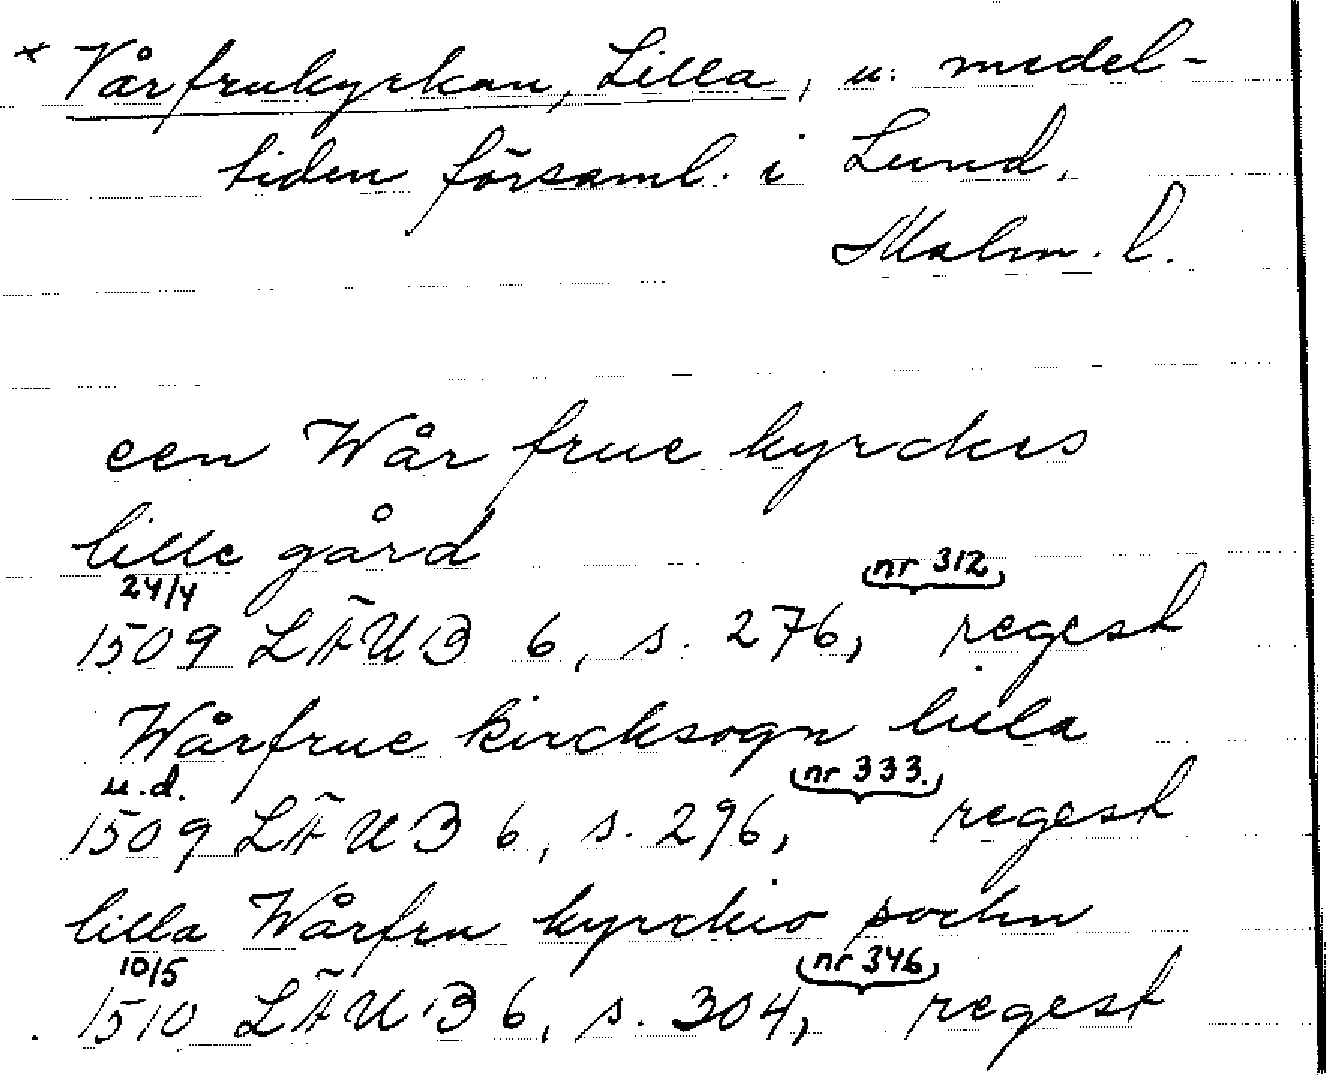 * Vårfrukyrkan, Lilla, u. medel-
tiden församl. i Lund,
Malm. l.
een Wår frue kyrckes
lille gård
24/4 nr 312
1509 LÄUB 6, s. 276, regest
Wårfrue kircksogn lilla
u.d. nr 333.
1509 LÄUB 6, s. 296, regest
lilla Wårfru kyrckio sochn
10/5 nr 346
1510 LÄUB 6, s. 304, regest